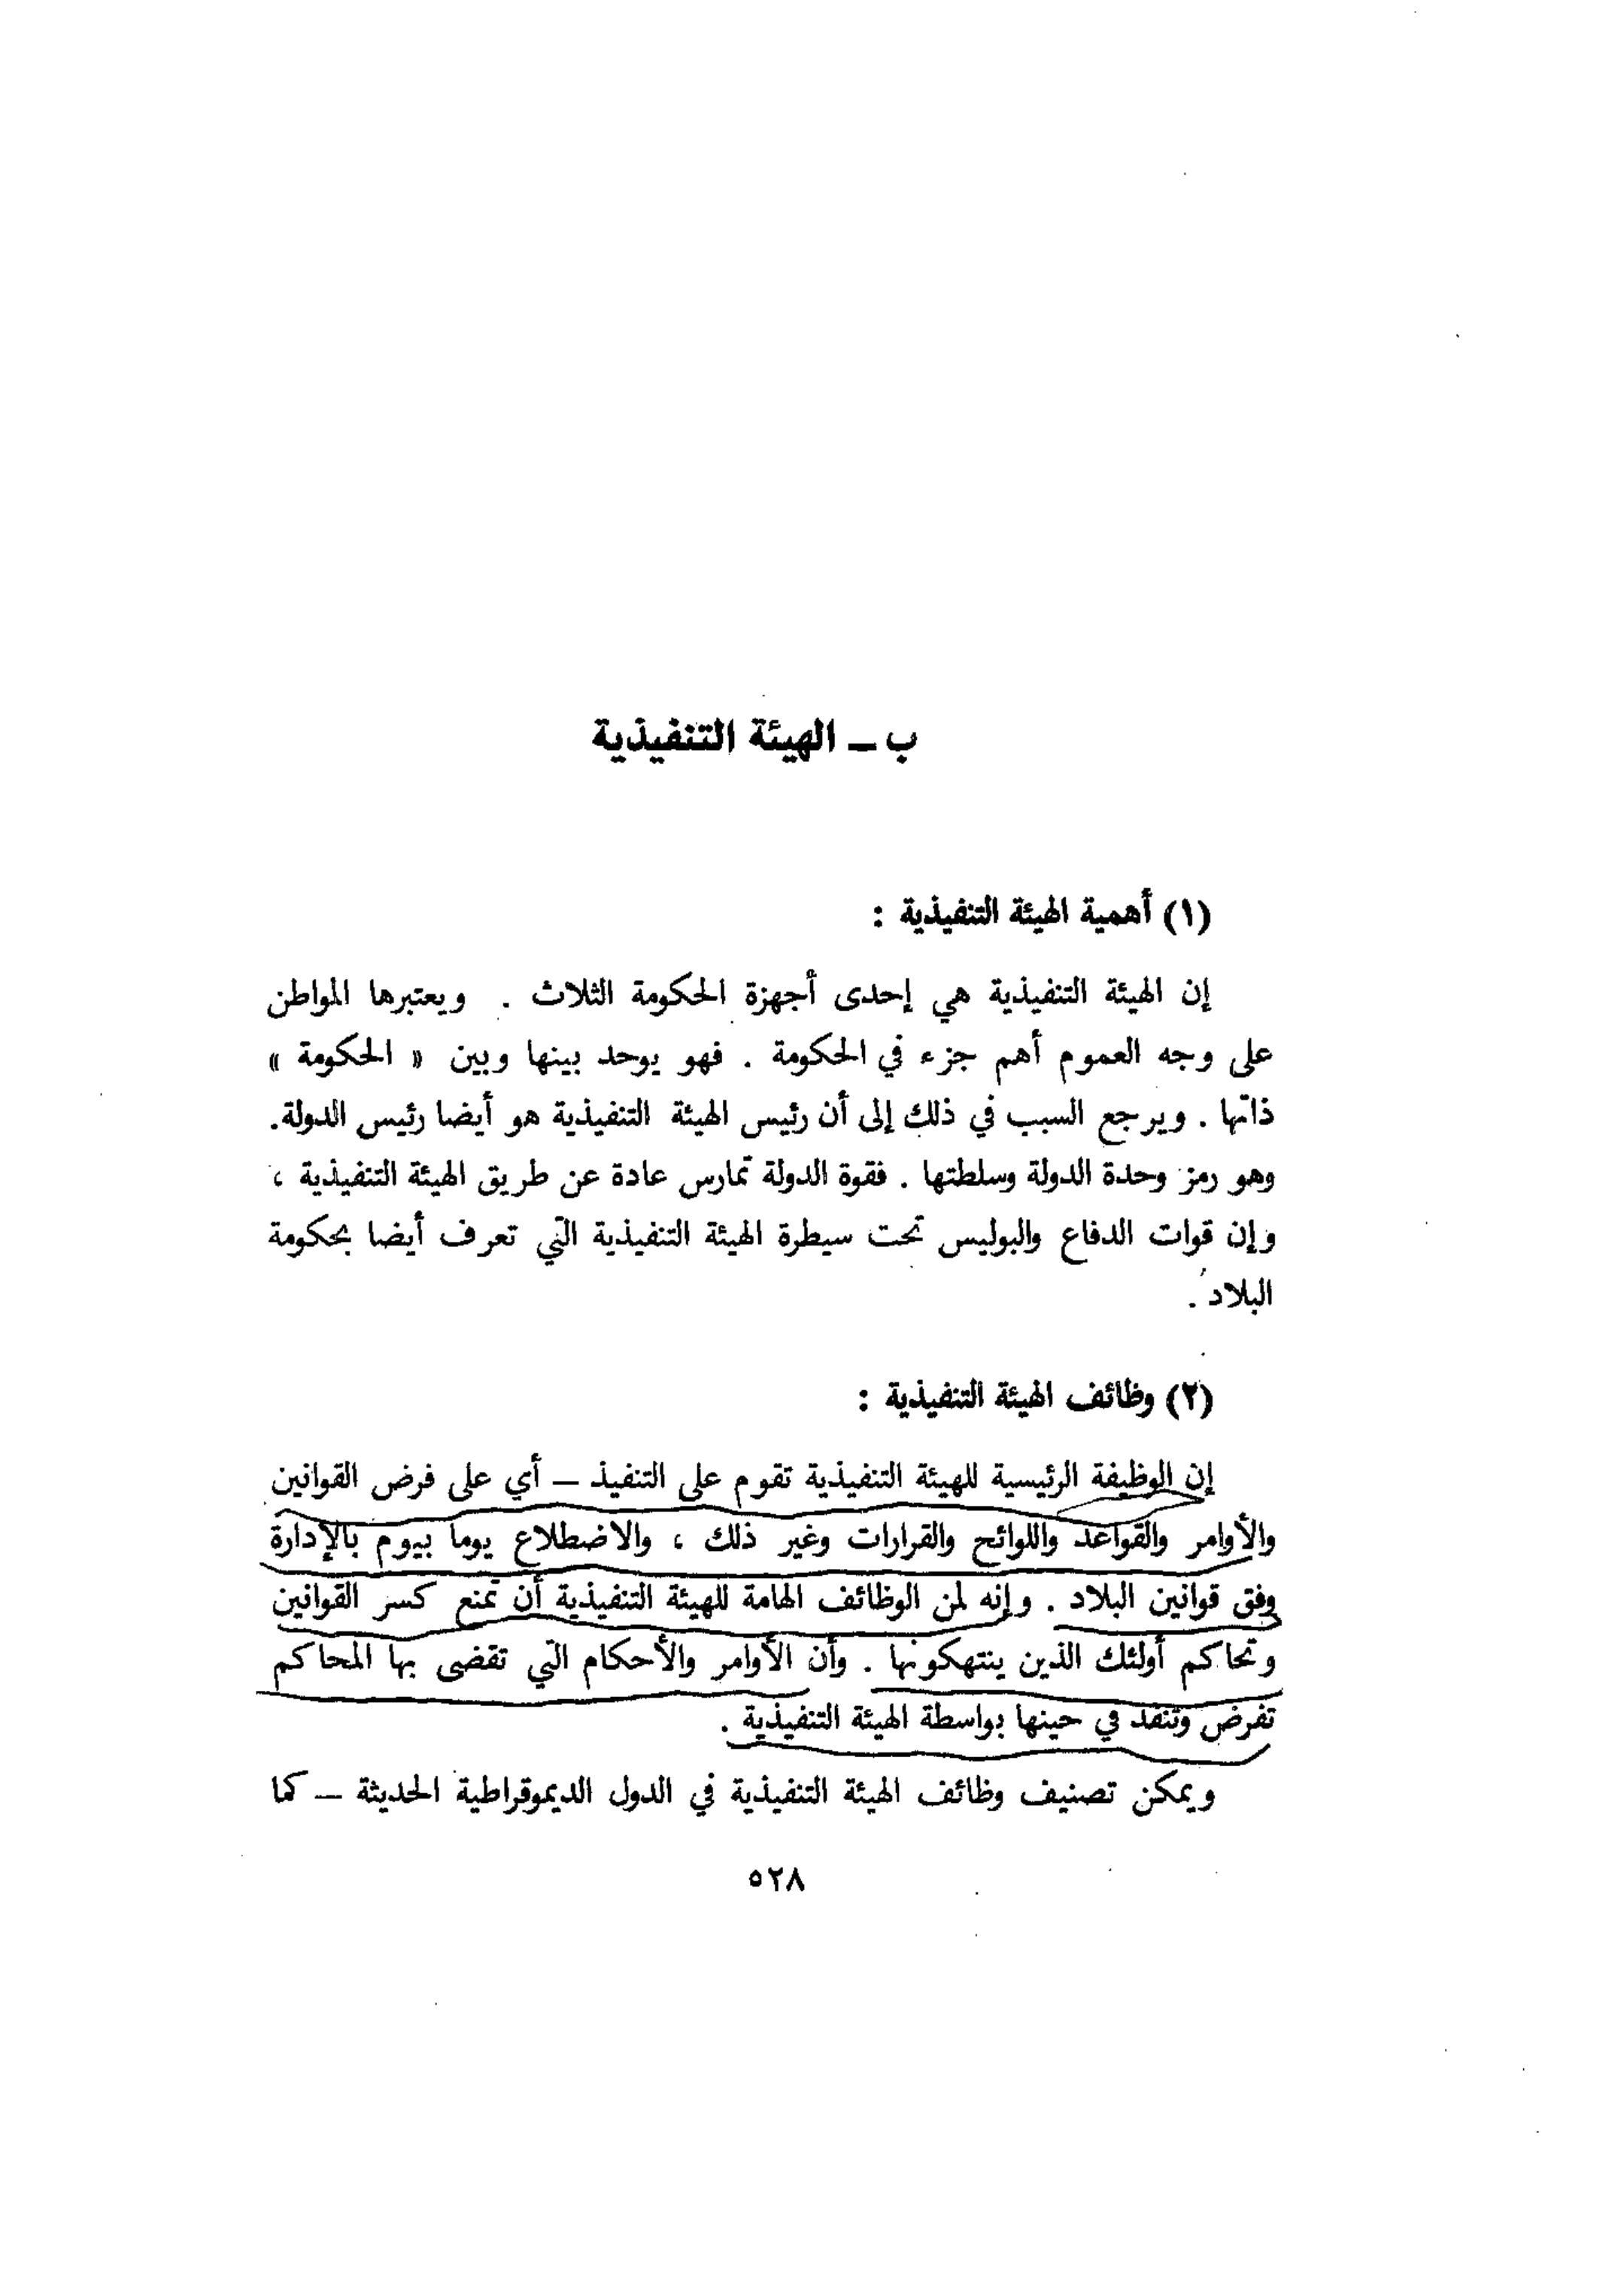 ب ـ الهيئة التنفيذية
(١) أهمية الهيئة التنفيذية :
إن الهيئة التنفيذية هي إحدى أجهزة الحكومة الثلاث . ويعتبرها المواطن
على وجه العموم أهم جزء في الحكومة . فهو يوحد بينها وبين « الحكومة »
ذاتها . ويرجع السبب في ذلك إلى أن رئيس الهيئة التنفيذية هو أيضا رئيس الدولة.
وهو رمز وحدة الدولة وسلطتها . فقوة الدولة تمارس عادة عن طريق الهيئة التنفيذية ،
وإن قوات الدفاع والبوليس تحت سيطرة الهيئة التنفيذية التي تعرف أيضا بحكومة
البلاد .
(٢) وظائف الهيئة التنفيذية :
إن الوظيفة الرئيسية للهيئة التنفيذية تقوم على التنفيذ ــ أي على فرض القوانين
والأوامر والقواعد واللوائح والقرارات وغير ذلك ، والاضطلاع يوما بيوم بالإدارة
وفق قوانين البلاد . وإنه لمن الوظائف الهامة للهيئة التنفيذية أن تمنع كسر القوانين
وتحاكم أولئك الذين ينتهكونها . وأن الأوامر والأحكام التي تقضى بها المحاكم
تفرض وتنفذ في حينها بواسطة الهيئة التنفيذية .
ويمكن تصنيف وظائف الهيئة التنفيذية في الدول الديموقراطية الحديثة ــ كما
٥٢٨